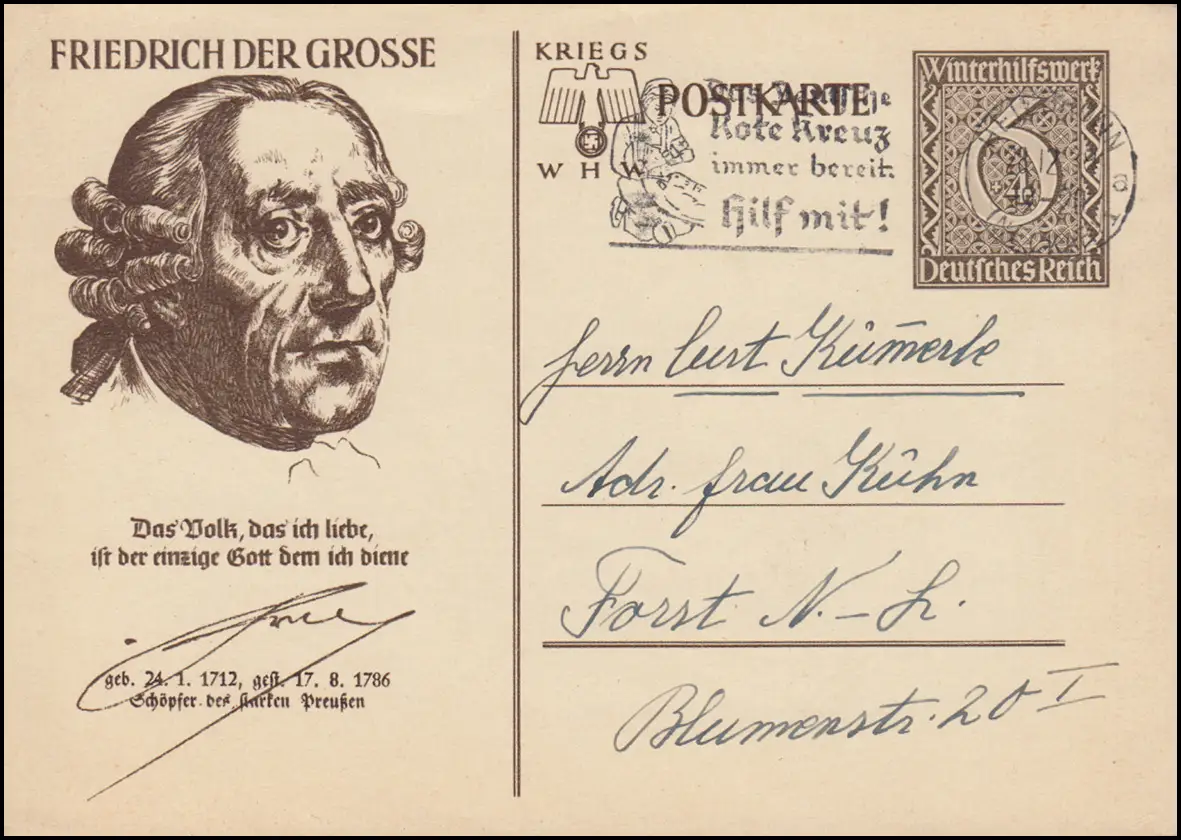 FRIEDRICH DER GROSSE
Das Volk, das ich liebe,
ist der einzige Gott dem ich diene
geb. 24. 1. 1712, gest. 17. 8. 1786
Schöpfer des starken Preußen
KRIEGS
WHW
POSTKARTE
Das Deutsche
Rote Kreuz
immer bereit.
Hilf mit!
Winterhilfswerk
6
+4
Deutsches Reich
Herrn Curt Kümmerle
Adr. Frau Kühn
Forst N.-L.
Blumenstr. 20 I